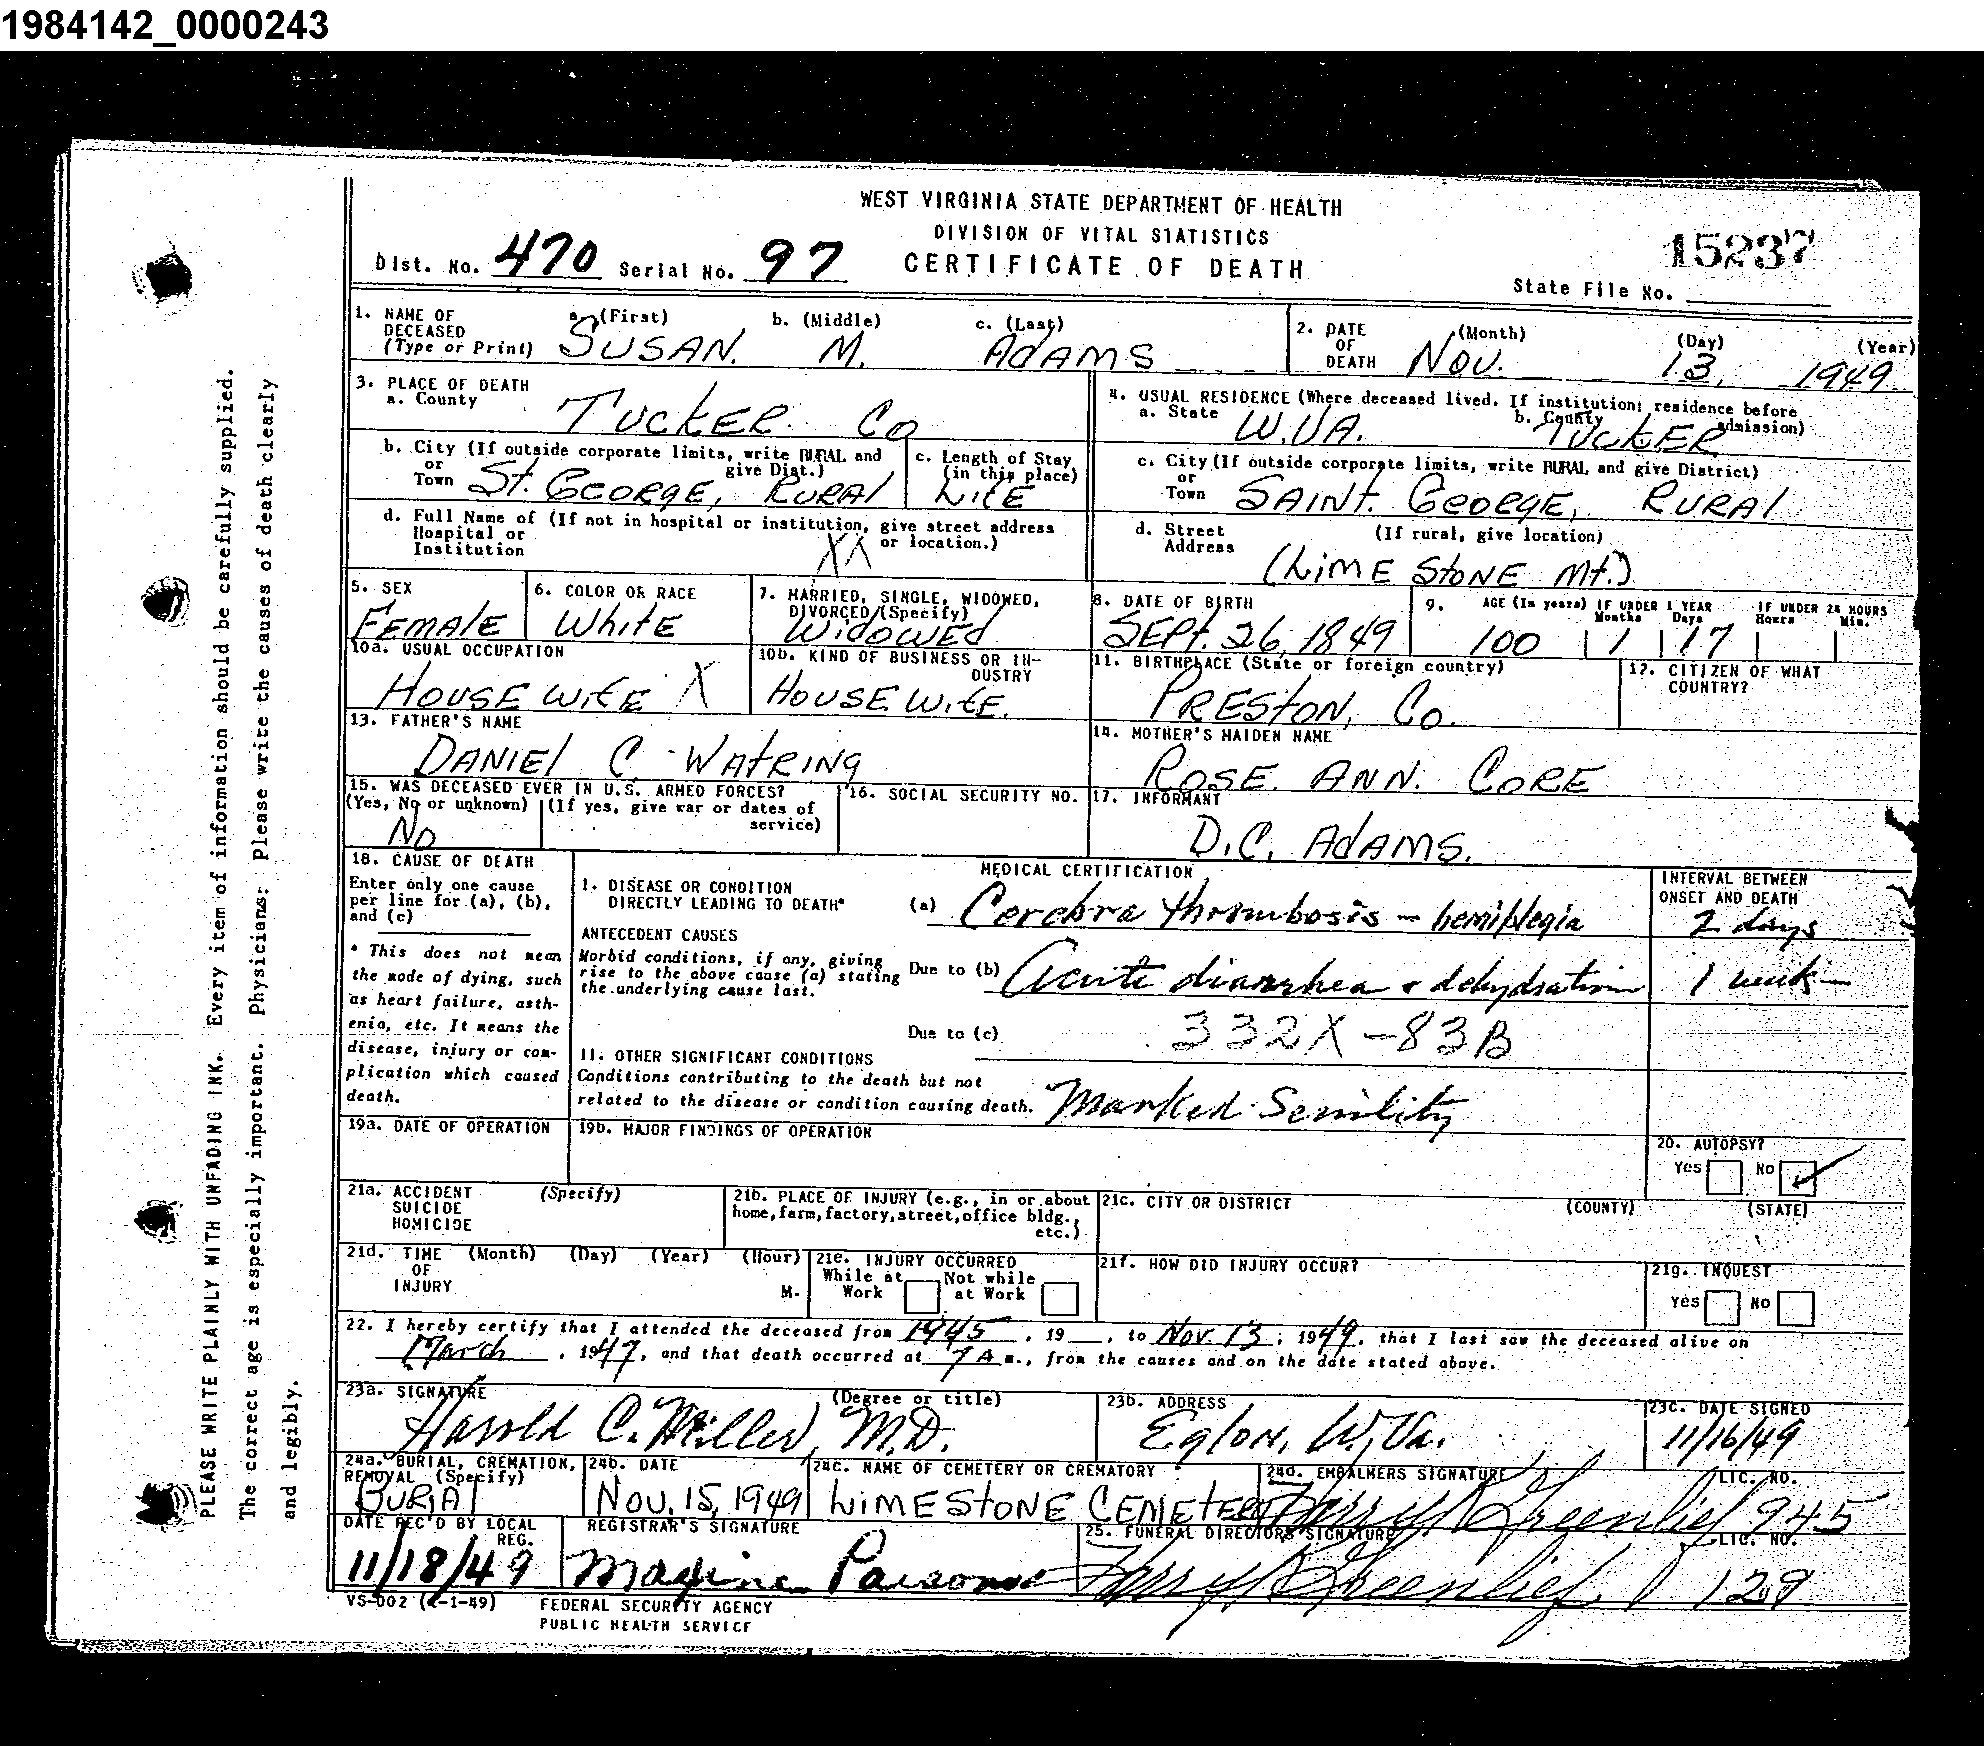 1984142_0000243
WEST VIRGINIA STATE DEPARTMENT OF HEALTH
DIVISION OF VITAL STATISTICS
CERTIFICATE OF DEATH
Dist. No. 470 Serial No. 97
15237
State File No.
1. NAME OF DECEASED (Type or Print) a. (First) SUSAN. b. (Middle) M. c. (Last) ADAMS
2. DATE OF DEATH (Month) NOV. (Day) 13, (Year) 1949
3. PLACE OF DEATH
a. County TUCKER CO
b. City (If outside corporate limits, write RURAL and give Dist.) or Town ST. GEORGE, RURAL
c. Length of Stay (in this place) LIFE
d. Full Name of (If not in hospital or institution, give street address or location.) Hospital or Institution XX
4. USUAL RESIDENCE (Where deceased lived. If institution: residence before admission)
a. State W.VA. b. County TUCKER
c. City (If outside corporate limits, write RURAL and give District) or Town SAINT. GEORGE, RURAL
d. Street Address (If rural, give location) (LIME STONE MT.)
5. SEX FEMALE
6. COLOR OR RACE WHITE
7. MARRIED, SINGLE, WIDOWED, DIVORCED (Specify) WIDOWED
8. DATE OF BIRTH SEPT. 26, 1849
9. AGE (In years) 100 IF UNDER 1 YEAR Months 1 Days 17 IF UNDER 24 HOURS Hours Min.
10a. USUAL OCCUPATION HOUSE WIFE X
10b. KIND OF BUSINESS OR INDUSTRY HOUSE WIFE.
11. BIRTHPLACE (State or foreign country) PRESTON, CO.
12. CITIZEN OF WHAT COUNTRY?
13. FATHER'S NAME DANIEL C. WATRING
14. MOTHER'S MAIDEN NAME ROSE ANN. CORE
15. WAS DECEASED EVER IN U.S. ARMED FORCES? (Yes, No or unknown) NO (If yes, give war or dates of service)
16. SOCIAL SECURITY NO.
17. INFORMANT D.C. ADAMS.
18. CAUSE OF DEATH
Enter only one cause per line for (a), (b), and (c)
* This does not mean the mode of dying, such as heart failure, asthenia, etc. It means the disease, injury or complication which caused death.
MEDICAL CERTIFICATION
INTERVAL BETWEEN ONSET AND DEATH
I. DISEASE OR CONDITION DIRECTLY LEADING TO DEATH* (a) Cerebra thrombosis - hemiplegia 2 days
ANTECEDENT CAUSES
Morbid conditions, if any, giving rise to the above cause (a) stating the underlying cause last.
Due to (b) Acute diarrhea & dehydration 1 week
Due to (c) 332X-83B
II. OTHER SIGNIFICANT CONDITIONS
Conditions contributing to the death but not related to the disease or condition causing death. Marked Senility
19a. DATE OF OPERATION
19b. MAJOR FINDINGS OF OPERATION
20. AUTOPSY? Yes No ✓
21a. ACCIDENT SUICIDE HOMICIDE (Specify)
21b. PLACE OF INJURY (e.g., in or about home, farm, factory, street, office bldg., etc.)
21c. CITY OR DISTRICT (COUNTY) (STATE)
21d. TIME OF INJURY (Month) (Day) (Year) (Hour) M.
21e. INJURY OCCURRED While at Work Not while at Work
21f. HOW DID INJURY OCCUR?
21g. INQUEST Yes No
22. I hereby certify that I attended the deceased from 1945, 19__, to Nov. 13, 1949, that I last saw the deceased alive on
March, 1947, and that death occurred at 7 A m., from the causes and on the date stated above.
23a. SIGNATURE (Degree or title) Harold C. Miller, M.D.
23b. ADDRESS Eglon, W. Va.
23c. DATE SIGNED 11/16/49
24a. BURIAL, CREMATION, REMOVAL (Specify) BURIAL
24b. DATE NOV. 15, 1949
24c. NAME OF CEMETERY OR CREMATORY LIMESTONE CEMETERY
24d. EMBALMERS SIGNATURE Harry R Greenlief LIC. NO. 945
DATE REC'D BY LOCAL REG. 11/18/49
REGISTRAR'S SIGNATURE Maxine Parsons
25. FUNERAL DIRECTORS SIGNATURE Harry R Greenlief LIC. NO. 129
VS-002 (1-1-49) FEDERAL SECURITY AGENCY
PUBLIC HEALTH SERVICE
PLEASE WRITE PLAINLY WITH UNFADING INK. Every item of information should be carefully supplied.
The correct age is especially important. Physicians: Please write the causes of death clearly
and legibly.